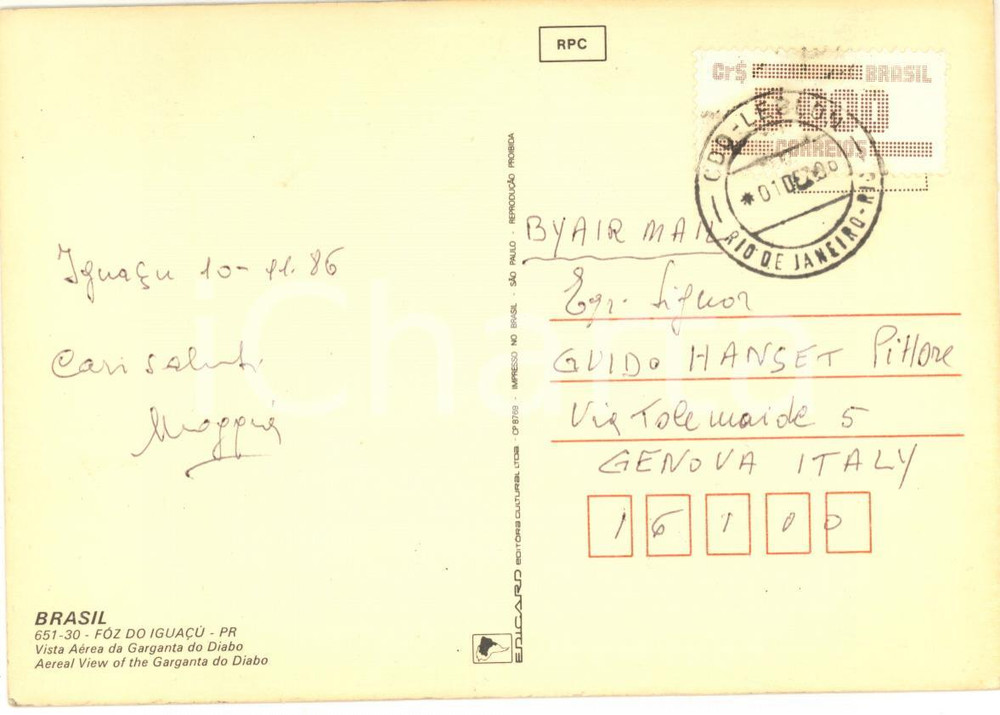 RPC
Cr$ BRASIL
CORREIOS
CDD-LEBLON
01 DEZ
RIO DE JANEIRO-RJ
BY AIR MAIL
Iguaçu 10-11.86
Egr. Signor
GUIDO HANSET Pittore
Cari saluti
Via Tolemaide 5
GENOVA ITALY
16100
BRASIL
651-30 - FÓZ DO IGUAÇÚ - PR
Vista Aérea da Garganta do Diabo
Aereal View of the Garganta do Diabo
EDICARD EDITORA CULTURAL LTDA - CP 8769 - IMPRESSO NO BRASIL - SÃO PAULO - REPRODUÇÃO PROIBIDA
iCharta